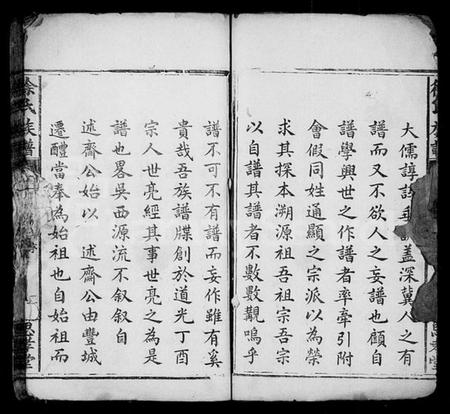 大儒諄諄垂誡蓋深冀人之有
譜而又不欲人之妄譜也顧自
譜學興世之作譜者率牽引附
會假同姓通顯之宗派以為榮
求其探本溯源祖吾祖宗吾宗
以自譜其譜者不數數覯嗚乎
譜不可不有譜而妄作雖有奚
貴哉吾族譜牒創於道光丁酉
宗人世亮經其事世亮之為是
譜也畧吳西源流不叙叙自
述齋公始以 述齋公由豐城
遷醴當奉為始祖也自始祖而
徐氏族譜